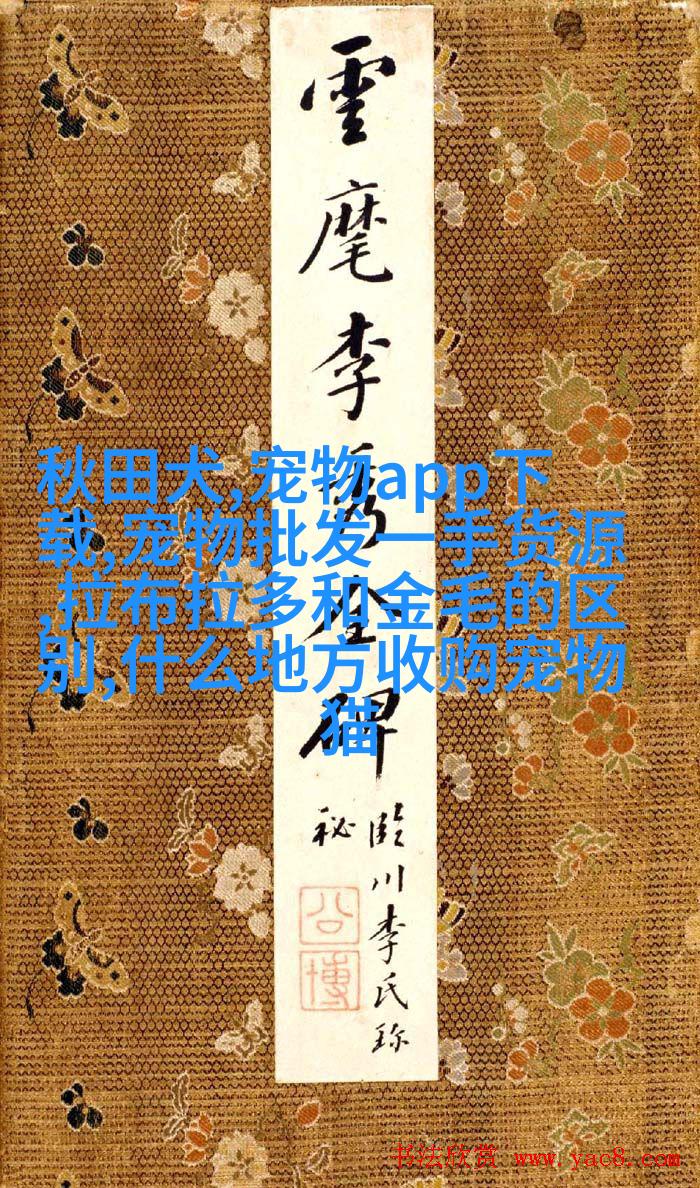 雲麾李秀全碑
秋田犬,宠物app下
载,宠物批发一手货源
,拉布拉多和金毛的区
别,什么地方收购宠物
猫
臨川李氏珎
秘
公博
书法欣赏 www.yac8.com